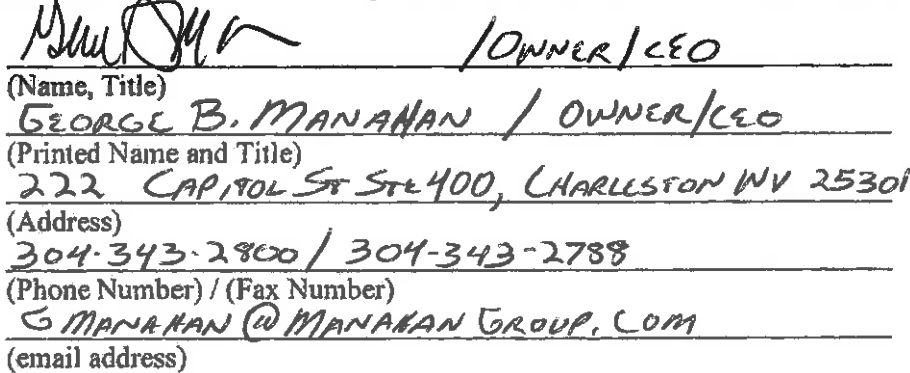 / OWNER/CEO
(Name, Title)
GEORGE B. MANAHAN / OWNER/CEO
(Printed Name and Title)
222 CAPITOL ST STE 400, CHARLESTON WV 25301
(Address)
304-343-2800 / 304-343-2788
(Phone Number) / (Fax Number)
GMANAHAN@MANAHANGROUP.COM
(email address)